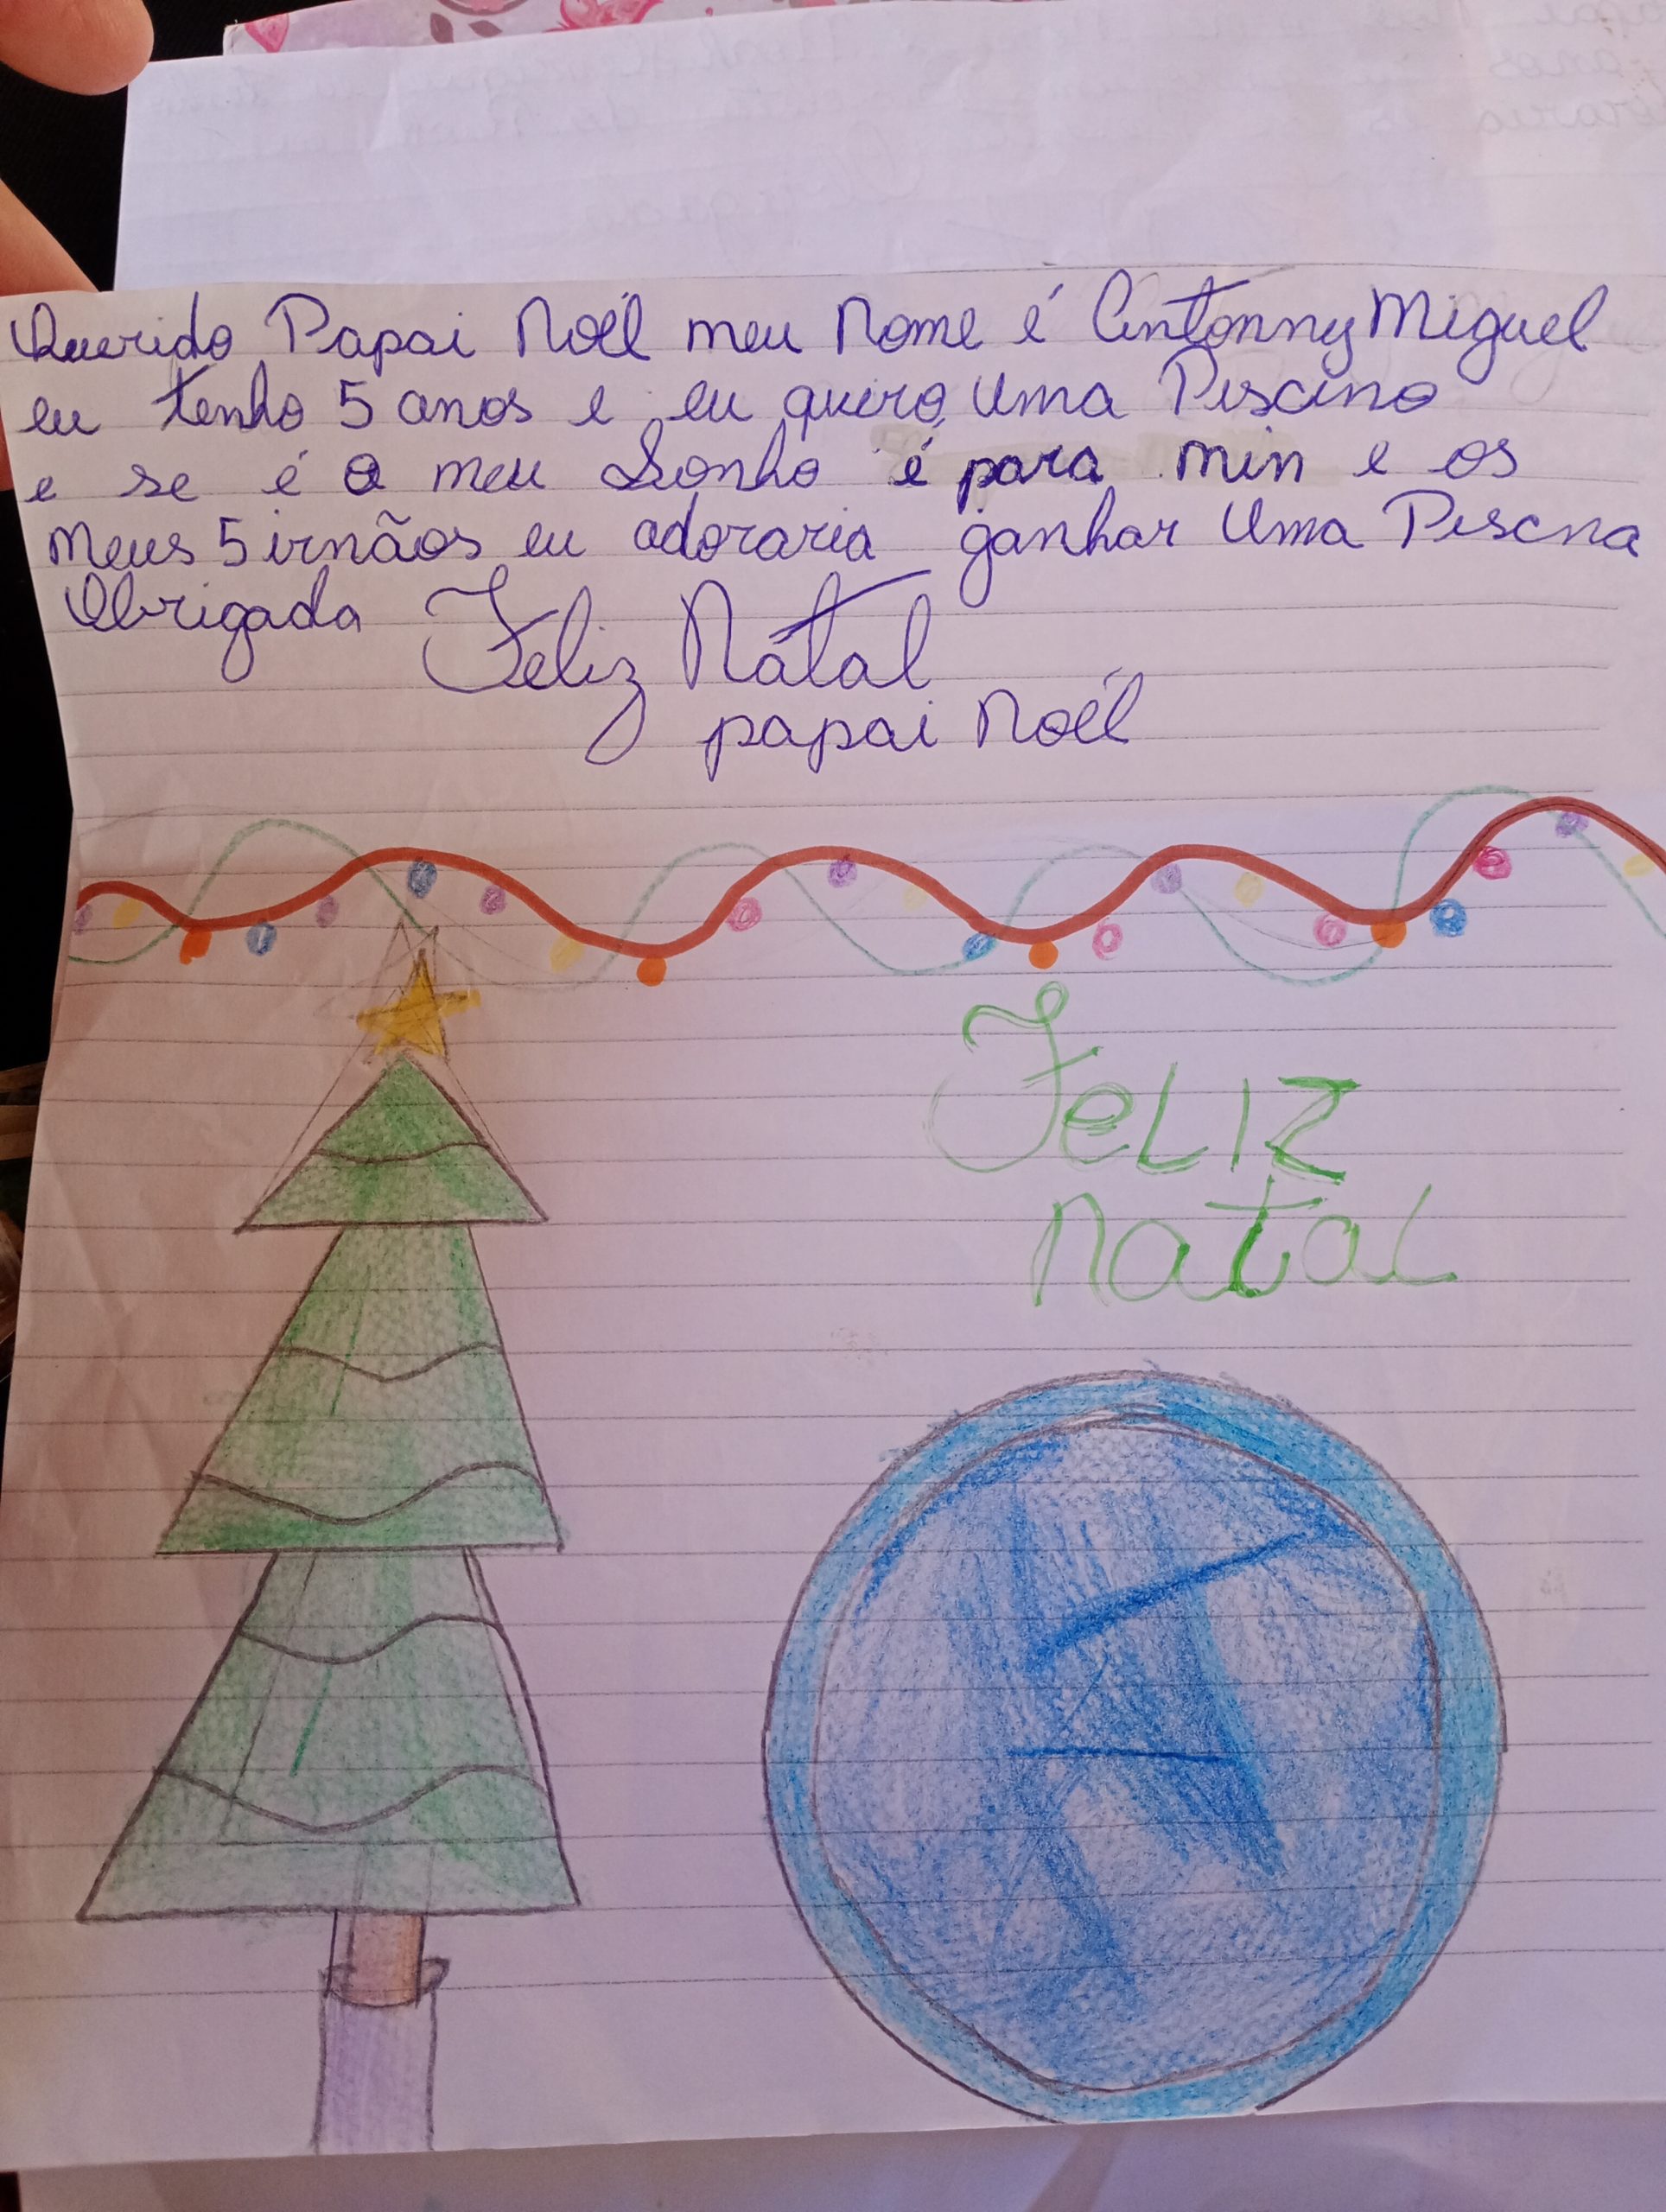 Querido Papai Noél meu Nome é Antonny Miguel
eu tenho 5 anos e eu quero uma Piscina
e se é o meu Sonho é para min e os
Meus 5 irnãos eu adoraria ganhar uma Piscna
Obrigada Feliz Natal
papai Noél
FeLIZ
Natal